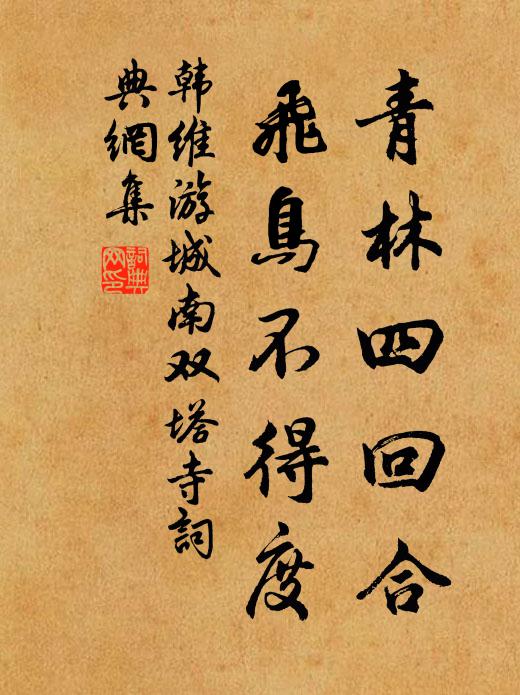 青林四回合
飛鳥不得度
韩维游城南双塔寺詞
典網集
詞典
网印